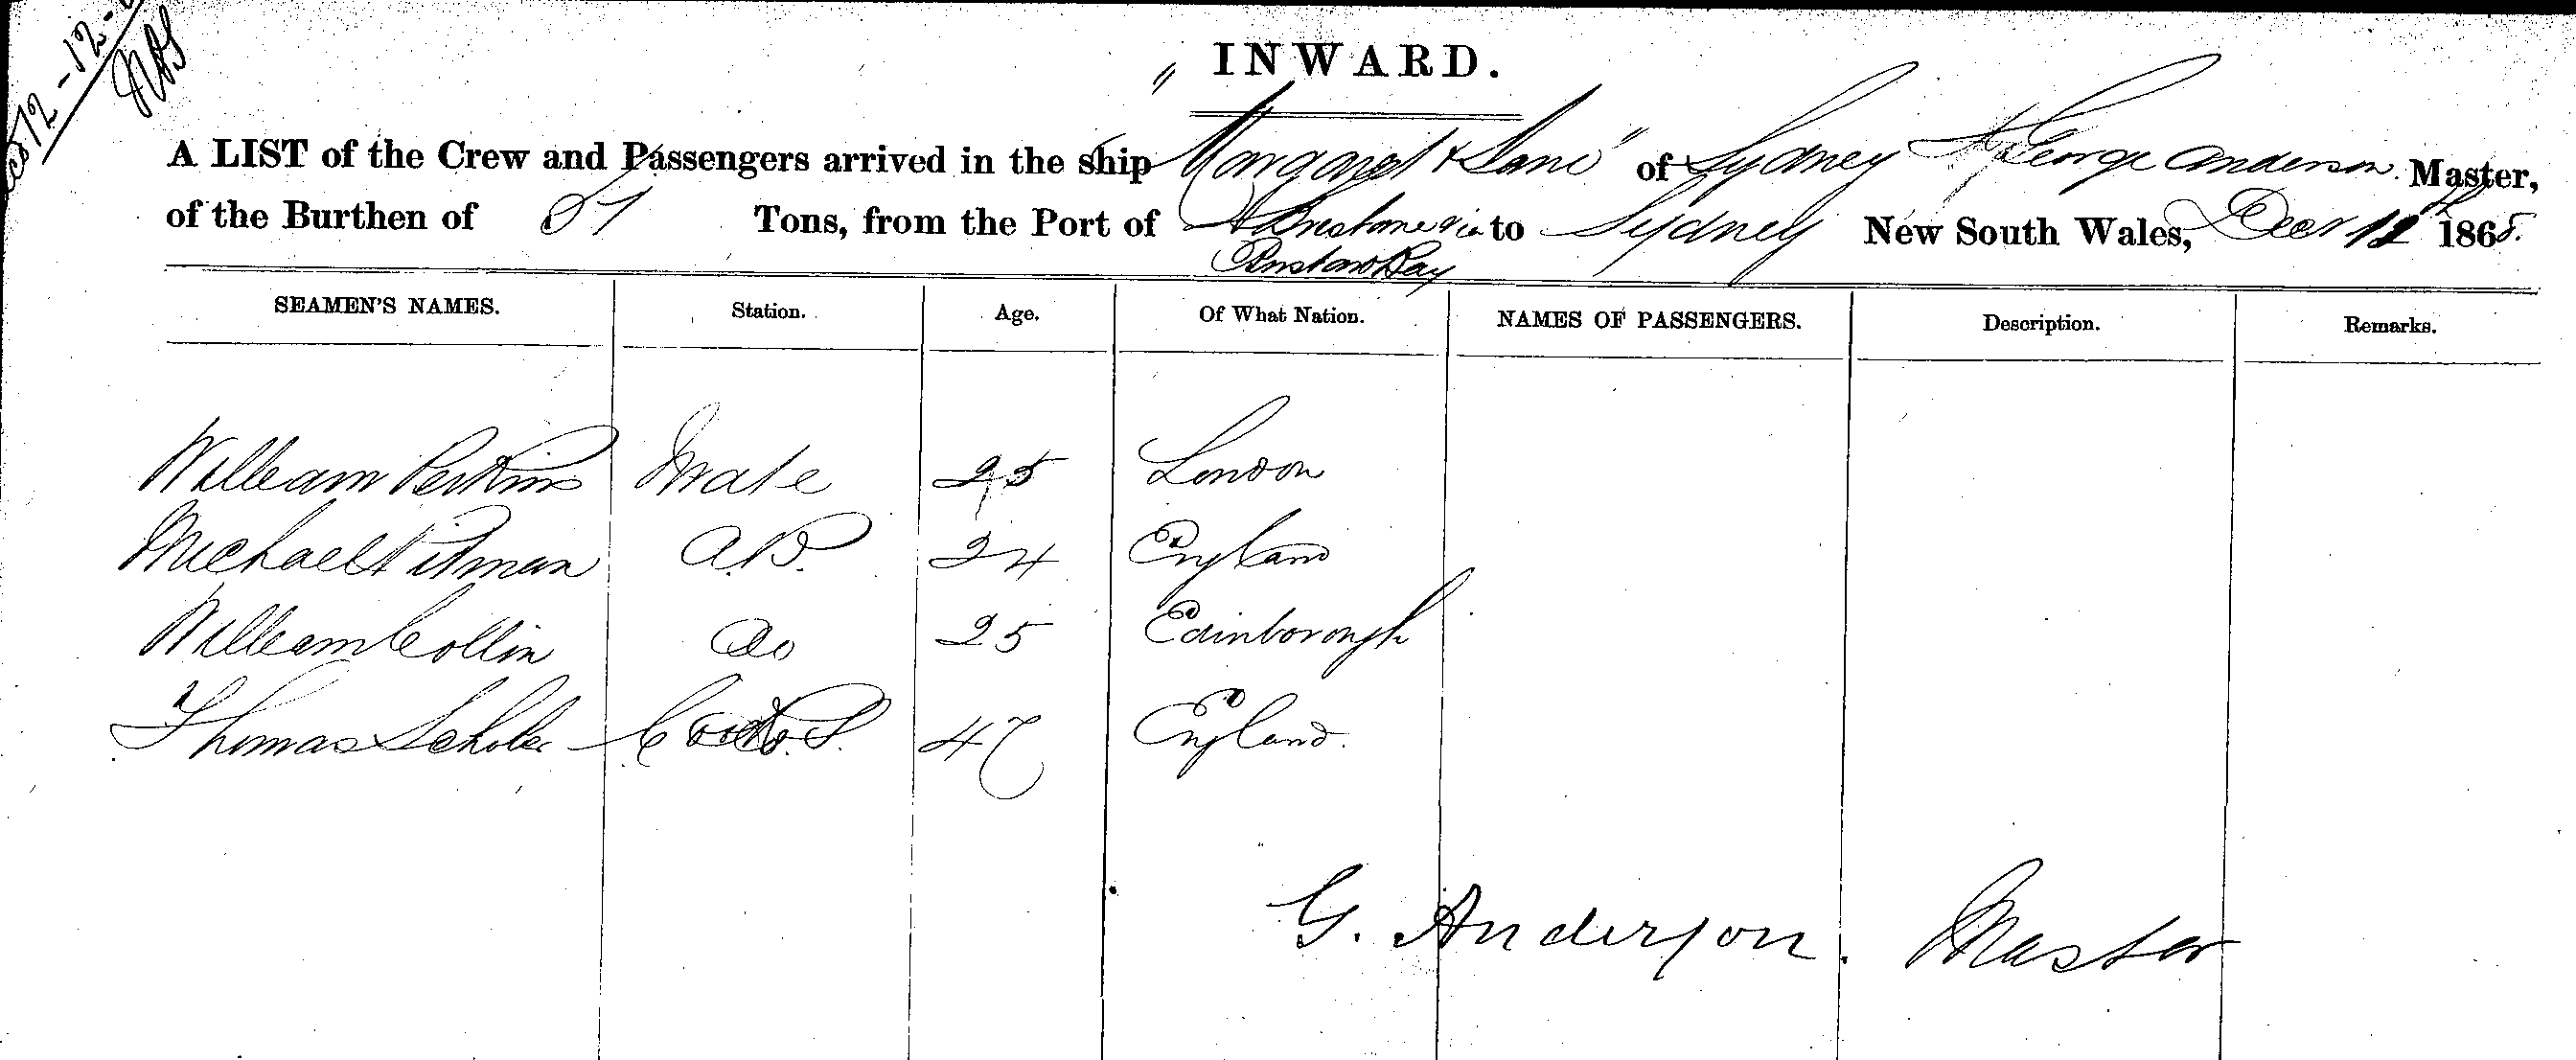 INWARD.
A LIST of the Crew and Passengers arrived in the ship "Margaret & Jane" of Sydney George Anderson Master,
of the Burthen of Tons, from the Port of Brisbane via to Sydney New South Wales, Decr 12th 1868.
Bay
SEAMEN'S NAMES. Station. Age. Of What Nation. NAMES OF PASSENGERS. Description. Remarks.
William Perkins Mate 25 London
Michael Pitman A.B. 24 England
William Collin Do 25 Edinborough
Thomas Cook & S. 47 England.
G. Anderson. Master